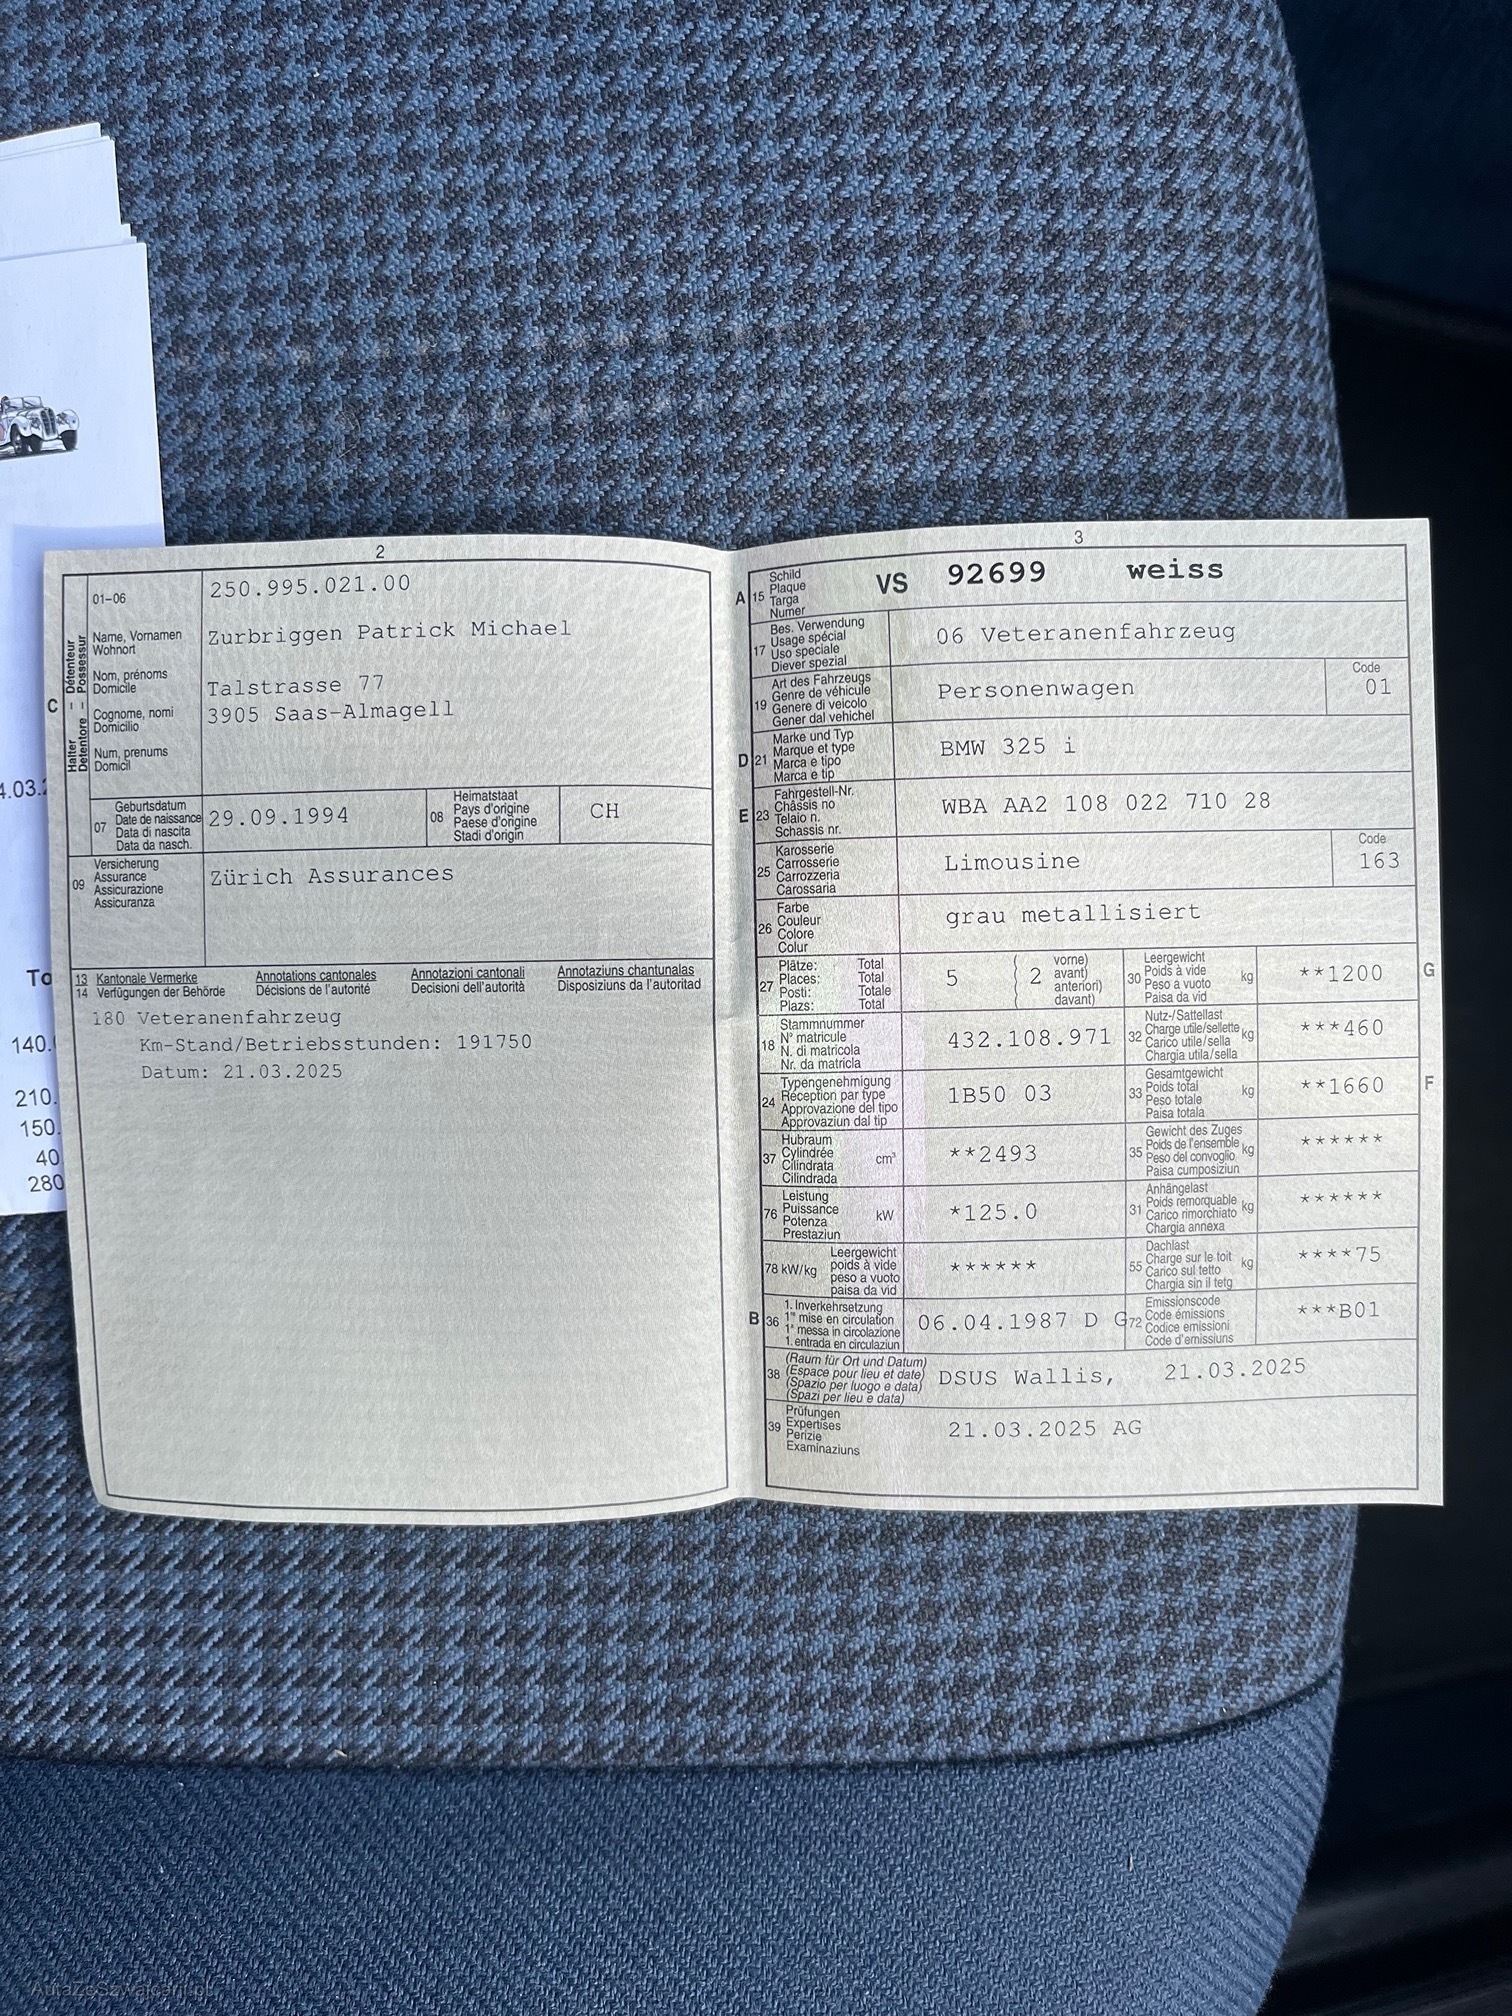 2
01-06
250.995.021.00
C
Halter – Détenteur
Detentore – Possessur
Name, Vornamen
Wohnort
Nom, prénoms
Domicile
Cognome, nomi
Domicilio
Num, prenums
Domicil
Zurbriggen Patrick Michael
Talstrasse 77
3905 Saas-Almagell
07
Geburtsdatum
Date de naissance
Data di nascita
Data da nasch.
29.09.1994
08
Heimatstaat
Pays d'origine
Paese d'origine
Stadi d'origin
CH
09
Versicherung
Assurance
Assicurazione
Assicuranza
Zürich Assurances
13 Kantonale Vermerke Annotations cantonales Annotazioni cantonali Annotaziuns chantunalas
14 Verfügungen der Behörde Décisions de l'autorité Decisioni dell'autorità Disposiziuns da l'autoritad
180 Veteranenfahrzeug
Km-Stand/Betriebsstunden: 191750
Datum: 21.03.2025
3
A 15
Schild
Plaque
Targa
Numer
VS 92699 weiss
17
Bes. Verwendung
Usage spécial
Uso speciale
Diever spezial
06 Veteranenfahrzeug
19
Art des Fahrzeugs
Genre de véhicule
Genere di veicolo
Gener dal vehichel
Personenwagen
Code
01
D 21
Marke und Typ
Marque et type
Marca e tipo
Marca e tip
BMW 325 i
E 23
Fahrgestell-Nr.
Châssis no
Telaio n.
Schassis nr.
WBA AA2 108 022 710 28
25
Karosserie
Carrosserie
Carrozzeria
Carossaria
Limousine
Code
163
26
Farbe
Couleur
Colore
Colur
grau metallisiert
27
Plätze: Total
Places: Total
Posti: Totale
Plazs: Total
5
2
vorne)
avant)
anteriori)
davant)
30
Leergewicht
Poids à vide
Peso a vuoto
Paisa da vid
kg
**1200
G
18
Stammnummer
N° matricule
N. di matricola
Nr. da matricla
432.108.971
32
Nutz-/Sattellast
Charge utile/sellette
Carico utile/sella
Chargia utila/sella
kg
***460
24
Typengenehmigung
Réception par type
Approvazione del tipo
Approvaziun dal tip
1B50 03
33
Gesamtgewicht
Poids total
Peso totale
Paisa totala
kg
**1660
F
37
Hubraum
Cylindrée
Cilindrata
Cilindrada
cm³
**2493
35
Gewicht des Zuges
Poids de l'ensemble
Peso del convoglio
Paisa cumposiziun
kg
******
76
Leistung
Puissance
Potenza
Prestaziun
kW
*125.0
31
Anhängelast
Poids remorquable
Carico rimorchiato
Chargia annexa
kg
******
78 kW/kg
Leergewicht
poids à vide
peso a vuoto
paisa da vid
******
55
Dachlast
Charge sur le toit
Carico sul tetto
Chargia sin il tetg
kg
****75
B 36
1. Inverkehrsetzung
1re mise en circulation
1a messa in circolazione
1. entrada en circulaziun
06.04.1987 D G
72
Emissionscode
Code émissions
Codice emissioni
Code d'emissiuns
***B01
38
(Raum für Ort und Datum)
(Espace pour lieu et date)
(Spazio per luogo e data)
(Spazi per lieu e data)
DSUS Wallis, 21.03.2025
39
Prüfungen
Expertises
Perizie
Examinaziuns
21.03.2025 AG
To
140.
210.
150.
40
280
AutaZeSzwajcarii.pl